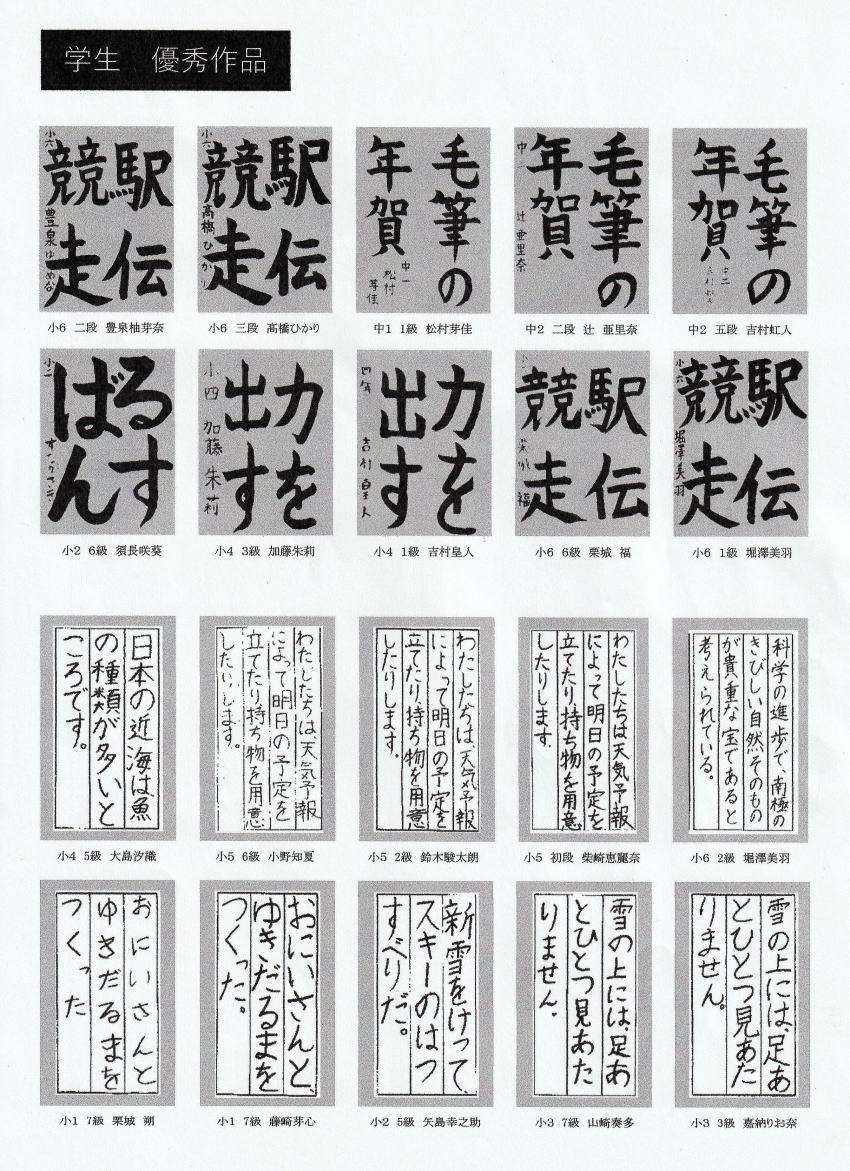 学生　優秀作品
駅伝
競走
小六 豊泉ゆめな
小6 二段 豊泉柚芽奈
駅伝
競走
小六 髙橋ひかり
小6 三段 髙橋ひかり
毛筆の
年賀
中一 松村芽佳
中1 1級 松村芽佳
毛筆の
年賀
中二 辻亜里奈
中2 二段 辻 亜里奈
毛筆の
年賀
中二
中2 五段 吉村虹人
るす
ばん
小二
小2 6級 須長咲葵
力を
出す
小四 加藤朱莉
小4 3級 加藤朱莉
力を
出す
四年 吉村皇人
小4 1級 吉村皇人
駅伝
競走
福
小6 6級 栗城 福
駅伝
競走
小六 堀澤美羽
小6 1級 堀澤美羽
日本の近海は魚
の種類が多いと
ころです。
小4 5級 大島汐織
わたしたちは、天気予報
によって明日の予定を
立てたり持ち物を用意
したりします。
小5 6級 小野知夏
わたしたちは、天気予報
によって明日の予定を
立てたり、持ち物を用意
したりします。
小5 2級 鈴木駿太朗
わたしたちは天気予報
によって明日の予定を
立てたり持ち物を用意
したりします。
小5 初段 柴崎恵麗奈
科学の進歩で、南極の
きびしい自然そのもの
が貴重な宝であると
考えられている。
小6 2級 堀澤美羽
おにいさんと
ゆきだるまを
つくった
小1 7級 栗城 朔
おにいさんと、
ゆきだるまを
つくった。
小1 7級 藤崎芽心
新雪をけって、
スキーのはつ
すべりだ。
小2 5級 矢島幸之助
雪の上には、足あ
とひとつ見あた
りません。
小3 7級 山崎奏多
雪の上には、足あ
とひとつ見あた
りません。
小3 3級 嘉納りお奈